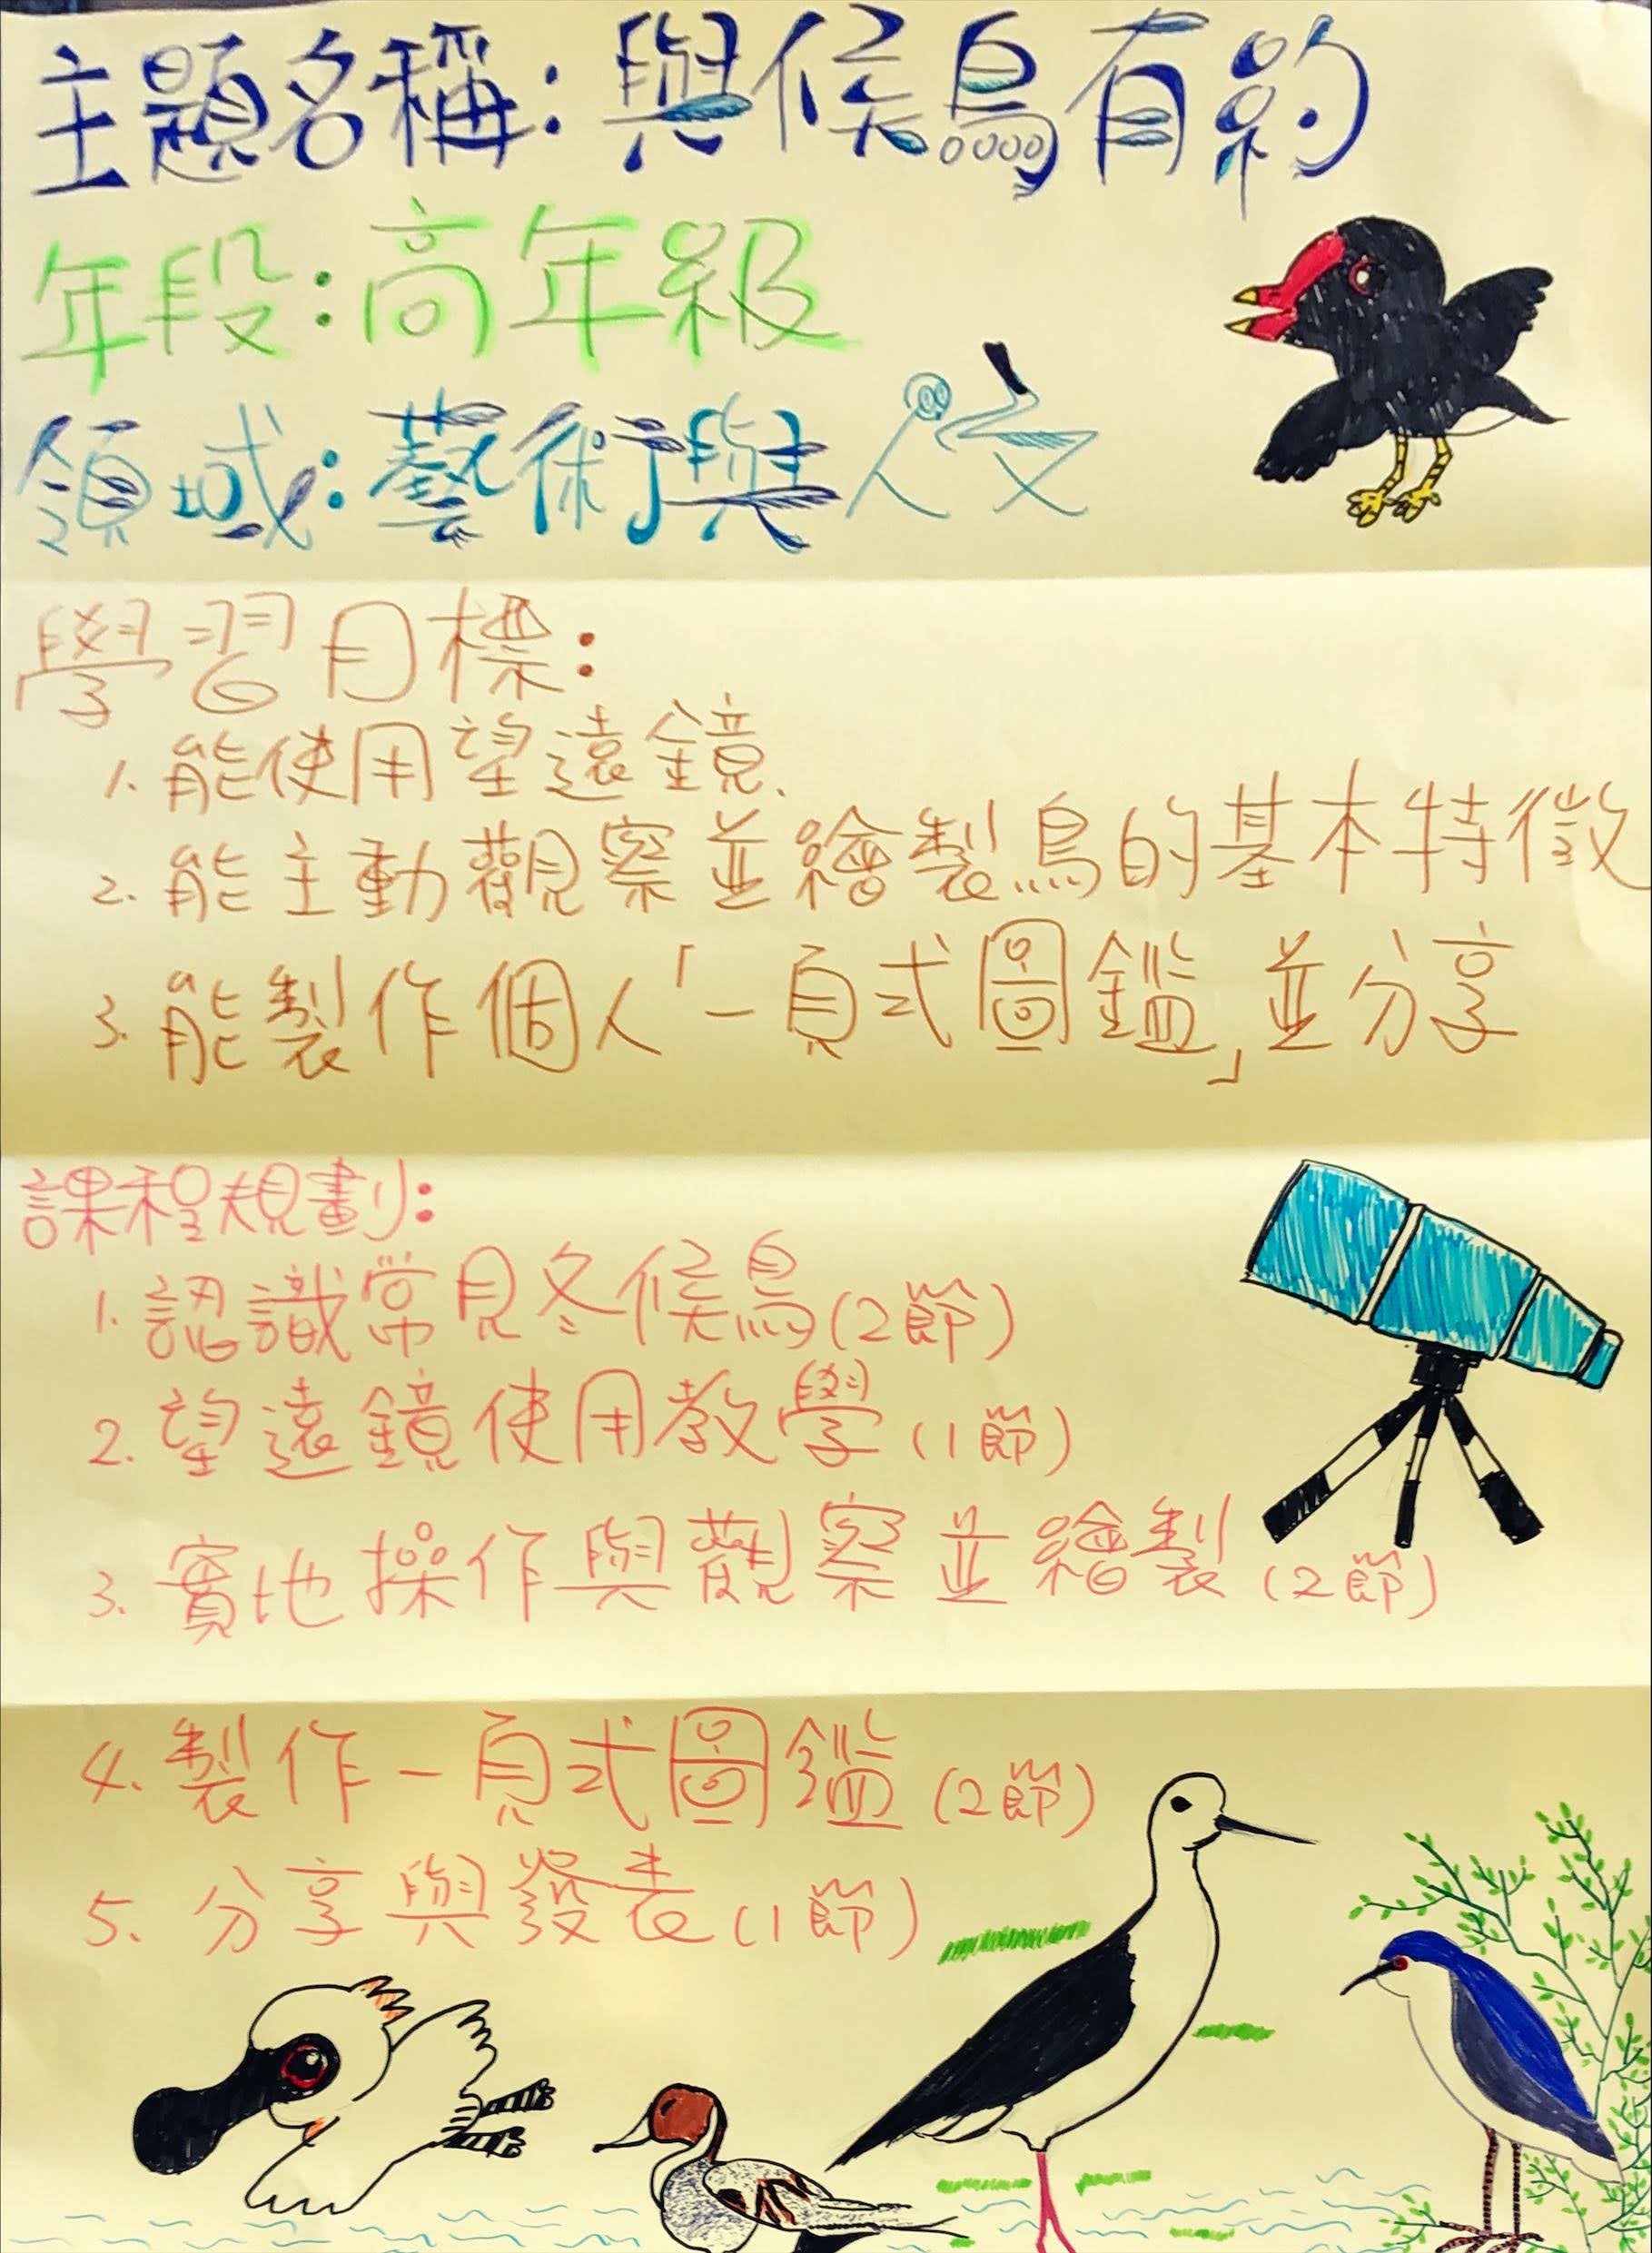 主題名稱:與候鳥有約
年段:高年級
領域:藝術與人文
學習目標:
1.能使用望遠鏡、
2.能主動觀察並繪製鳥的基本特徵
3.能製作個人「一頁式圖鑑」並分享
課程規劃:
1.認識常見冬候鳥(2節)
2.望遠鏡使用教學(1節)
3.實地操作與觀察並繪製(2節)
4.製作一頁式圖鑑(2節)
5.分享與發表(1節)